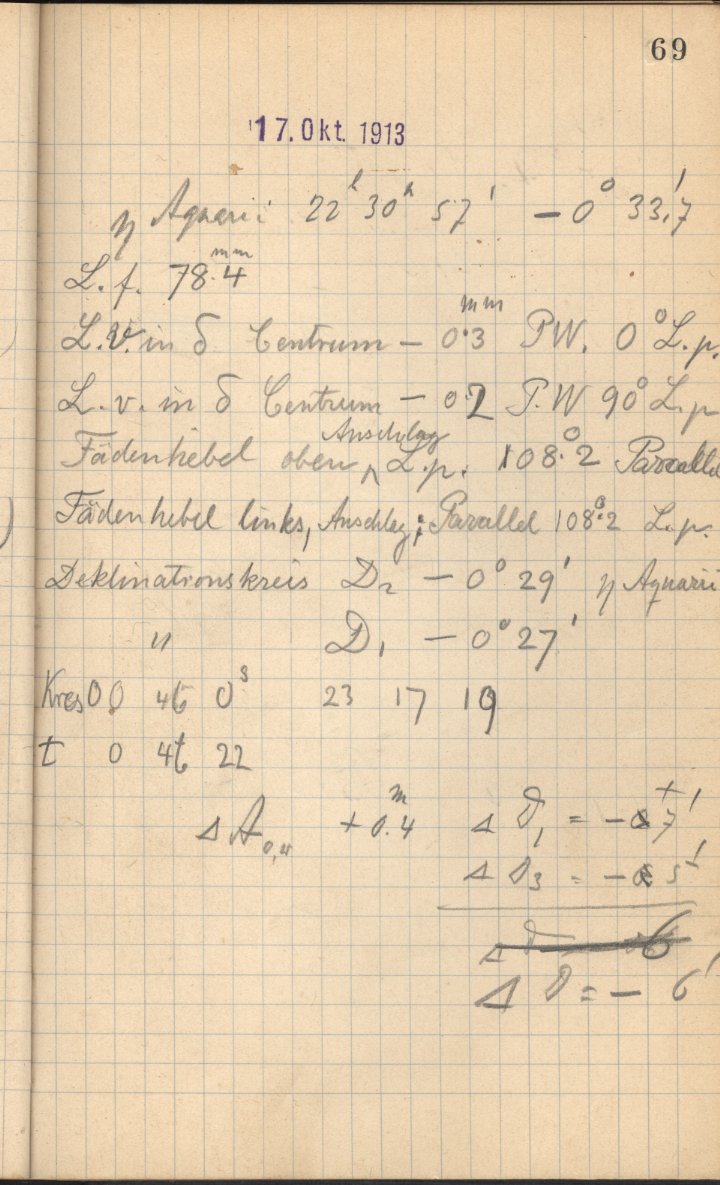 69
17. Okt. 1913
η Aquarii 22h 30m 57s — 0° 33,7'
L.f. 78.4 mm
L.v. in δ Centrum — 0.3 mm P.W. 0° L.p.
L.v. in δ Centrum — 0.2 P.W 90° L.p
Fädenhebel oben, Anschlag L.p. 108.°2 Parallel
Fädenhebel links, Anschlag; Parallel 108.°2 L.p.
Deklinationskreis D2 — 0° 29' η Aquarii
" D1 — 0° 27'
Kreis 0 0 46 0s 23 17 19
t 0 46 22
Δ A + 0.4 m Δ D1 = — 7'
Δ D3 = — 5'
Δ D = — 6'